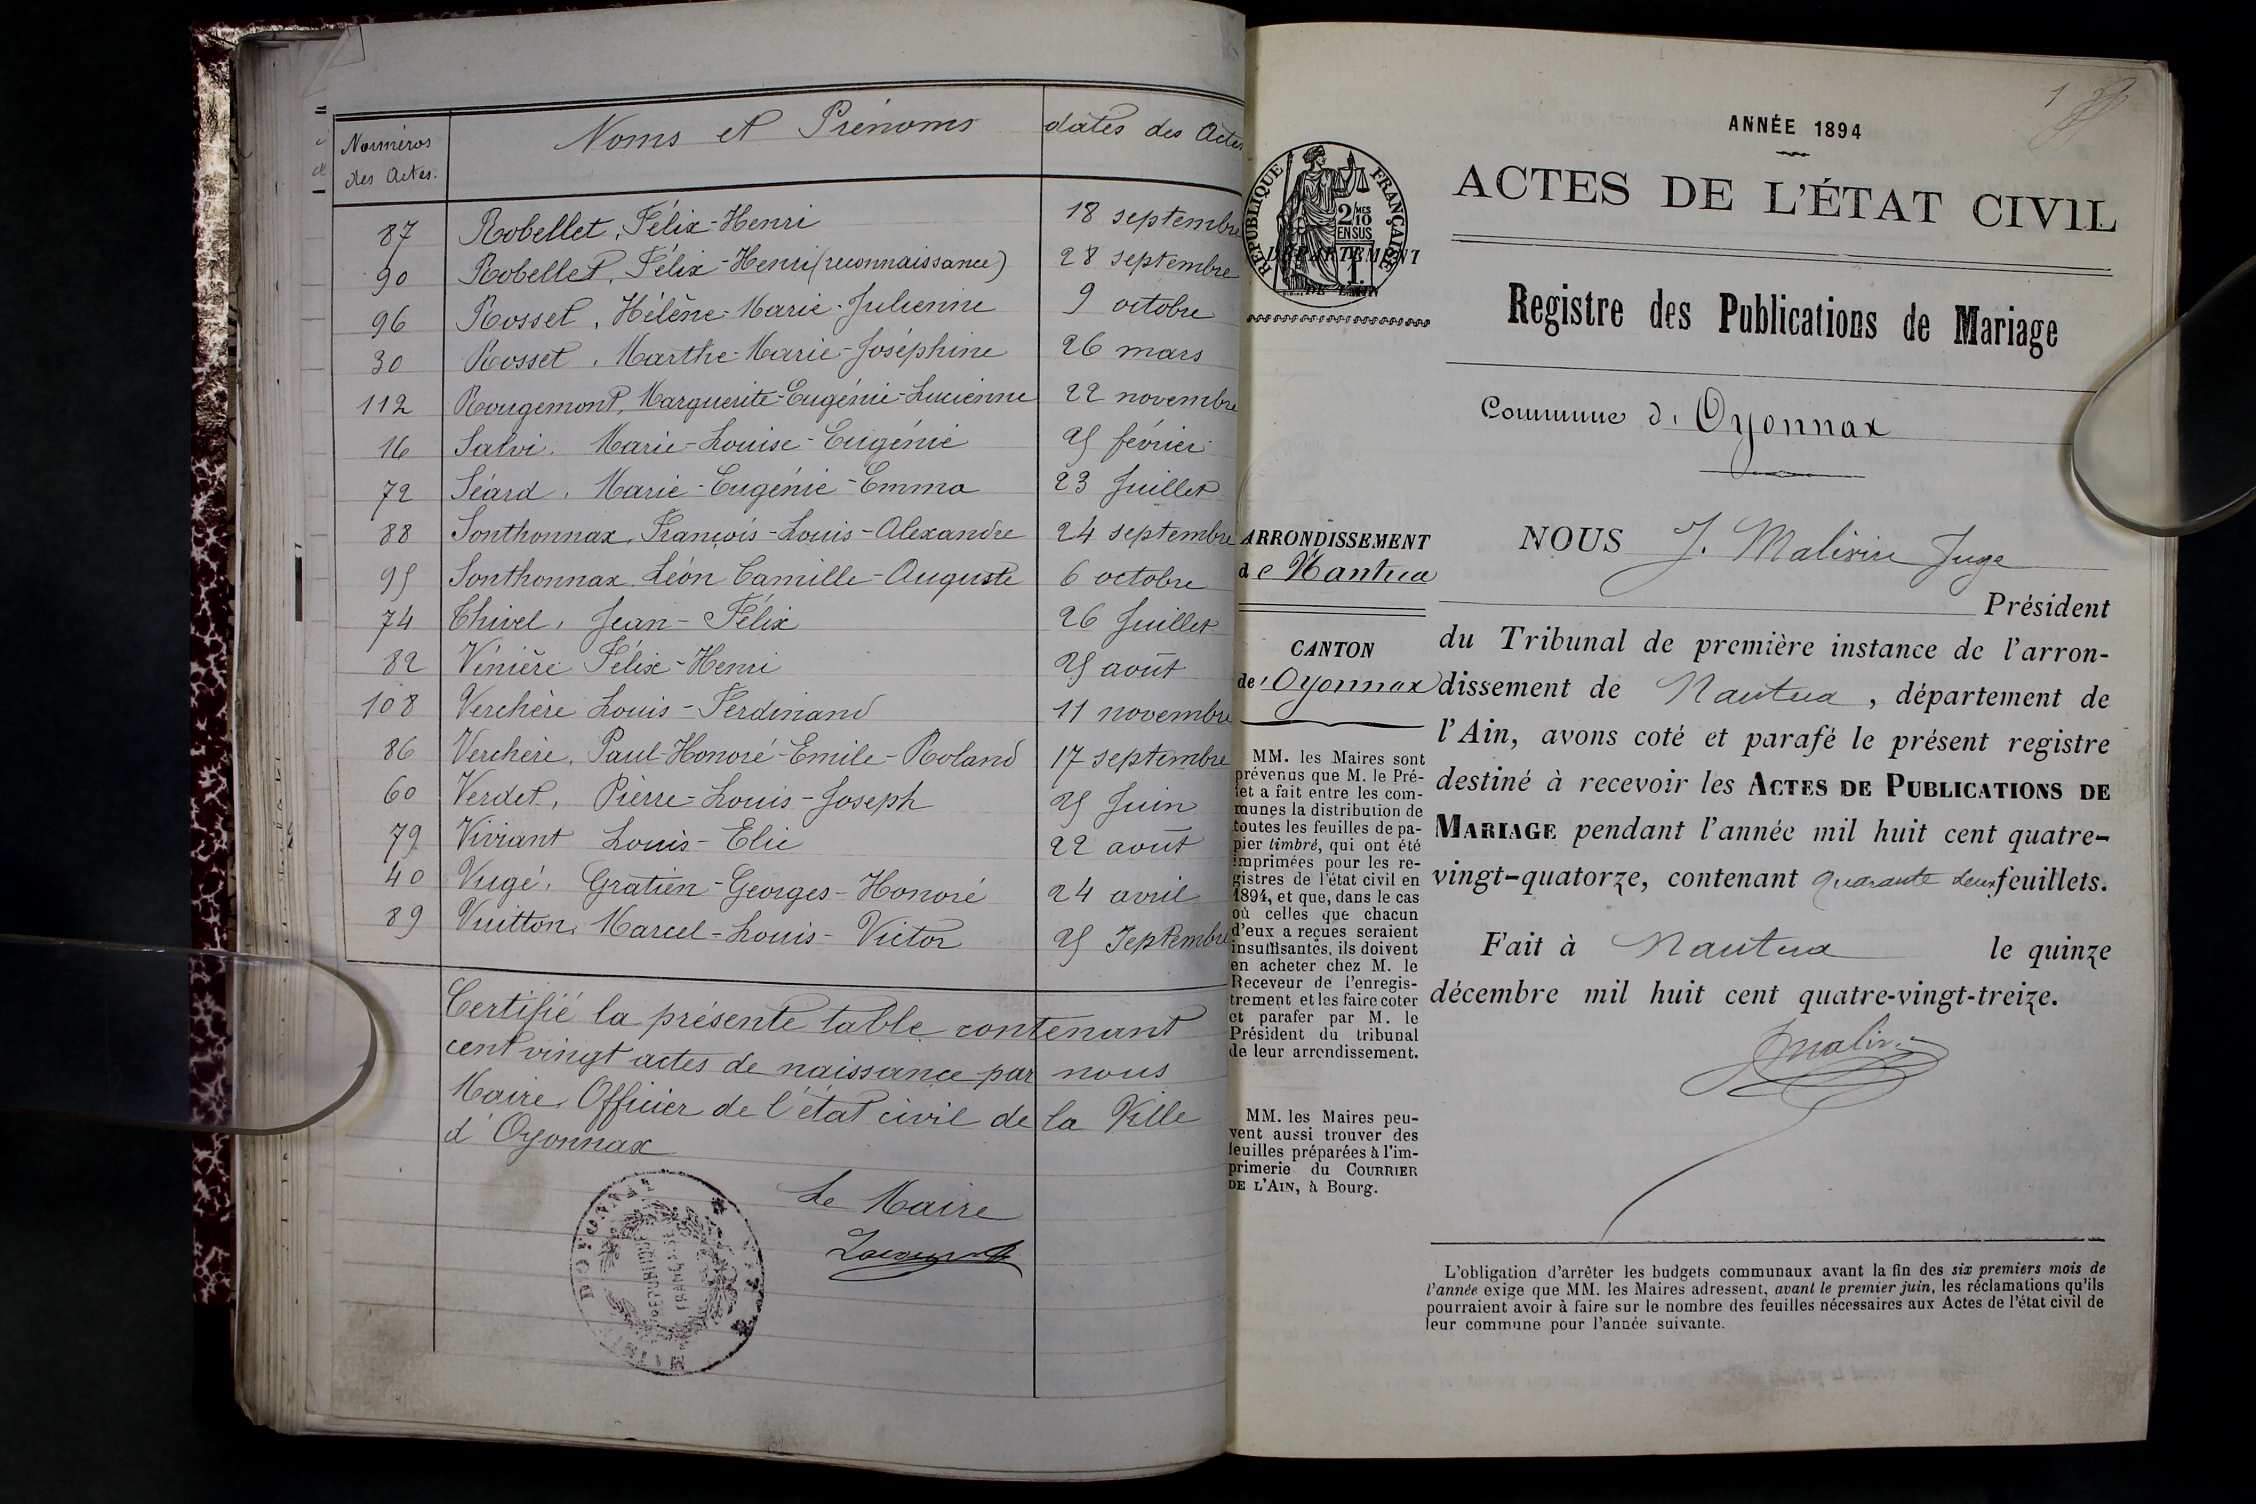 Numéros des Actes.
Noms et Prénoms
dates des Actes
87 Robellet, Félix-Henri 18 septembre
90 Robellet, Félix-Henri (reconnaissance) 28 septembre
96 Rosset, Hélène-Marie-Julienne 9 octobre
30 Rosset, Marthe-Marie-Joséphine 26 mars
112 Rougemont, Marguerite-Eugénie-Lucienne 22 novembre
16 Salvi, Marie-Louise-Eugénie 25 février
72 Séard, Marie-Eugénie-Emma 23 Juillet
88 Sonthonnax, François-Louis-Alexandre 24 septembre
95 Sonthonnax Léon Camille-Auguste 6 octobre
74 Thivel, Jean-Félix 26 Juillet
82 Vénière Félix-Henri 25 août
108 Verchère Louis-Ferdinand 11 novembre
86 Verchère, Paul-Honoré-Emile-Roland 17 septembre
60 Verdet, Pierre-Louis-Joseph 25 Juin
79 Viviant Louis-Elie 22 août
40 Vugé, Gratien-Georges-Honoré 24 avril
89 Vuitton, Marcel-Louis-Victor 25 Septembre
Certifié la présente table contenant
cent vingt actes de naissance par nous
Maire, Officier de l'état civil de la Ville
d'Oyonnax
Le Maire
RÉPUBLIQUE
FRANÇAISE
1
ANNÉE 1894
ACTES DE L'ÉTAT CIVIL
RÉPUBLIQUE FRANÇAISE
2/10 MES
EN SUS
DÉPARTEMENT
DE L'AIN
Registre des Publications de Mariage
Commune d' Oyonnax
ARRONDISSEMENT
de Nantua
CANTON
de' Oyonnax
MM. les Maires sont
prévenus que M. le Pré-
fet a fait entre les com-
munes la distribution de
toutes les feuilles de pa-
pier timbré, qui ont été
imprimées pour les re-
gistres de l'état civil en
1894, et que, dans le cas
où celles que chacun
d'eux a reçues seraient
insuffisantes, ils doivent
en acheter chez M. le
Receveur de l'enregis-
trement et les faire coter
et parafer par M. le
Président du tribunal
de leur arrondissement.
MM. les Maires peu-
vent aussi trouver des
feuilles préparées à l'im-
primerie du COURRIER
DE L'AIN, à Bourg.
NOUS J. Malivin Juge
Président
du Tribunal de première instance de l'arron-
dissement de Nantua, département de
l'Ain, avons coté et parafé le présent registre
destiné à recevoir les ACTES DE PUBLICATIONS DE
MARIAGE pendant l'année mil huit cent quatre-
vingt-quatorze, contenant quarante deux feuillets.
Fait à Nantua le quinze
décembre mil huit cent quatre-vingt-treize.
L'obligation d'arrêter les budgets communaux avant la fin des six premiers mois de
l'année exige que MM. les Maires adressent, avant le premier juin, les réclamations qu'ils
pourraient avoir à faire sur le nombre des feuilles nécessaires aux Actes de l'état civil de
leur commune pour l'année suivante.